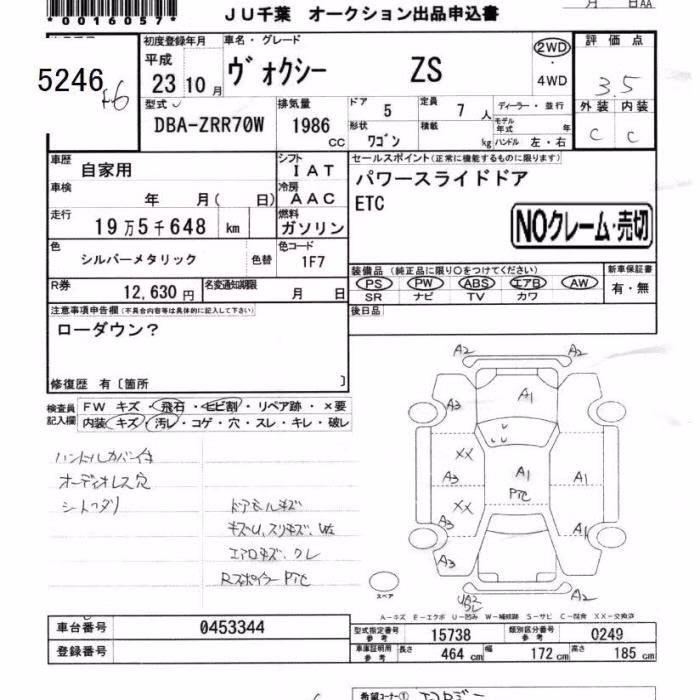 *0016057*
月 日AA
JU千葉 オークション出品申込書
5246
初度登録年月
平成
23 10 月
車名・グレード
ヴォクシー ZS
2WD
4WD
評価点
3.5
外装 内装
C C
型式
DBA-ZRR70W
排気量
1986
CC
ドア 5
定員 7 人
形状 ワゴン
積載 kg
ディーラー・並行
モデル年式 年
ハンドル 左・右
車歴
自家用
シフト
IAT
車検
年 月( 日)
冷房
AAC
走行
19万5千648 km
燃料
ガソリン
色
シルバーメタリック
色替
色コード
1F7
R券
12,630 円
名変通知期限
月 日
セールスポイント(正常に機能するものに限ります)
パワースライドドア
ETC
NOクレーム・売切
装備品 (純正品に限り○をつけてください)
PS PW ABS エアB AW
SR ナビ TV カワ
新車保証書
有・無
後日品
注意事項申告欄(不具合内容等は具体的に記入して下さい)
ローダウン?
修復歴 有〔箇所 〕
検査員
記入欄
FW キズ・飛石・ヒビ割・リペア跡・×要
内装 キズ・汚レ・コゲ・穴・スレ・キレ・破レ
ハンドルカバー付
オーディオレス穴
シートヘタリ
ドアモールキズ
エアロキズ、クレ
Rスポイラー PTC
A2 A2
A3 A1
XX
A3 A1 A1
PTC
XX
A3 A1
A3
UA2 A2
スペア
A-キズ E-エクボ U-凹み W-補修跡 S-サビ C-腐食 XX-交換済
車台番号 0453344
登録番号
型式指定番号 参考 15738
類別区分番号 参考 0249
車庫証明用 参考
長さ 464 cm
幅 172 cm
高さ 185 cm
希望コーナー①